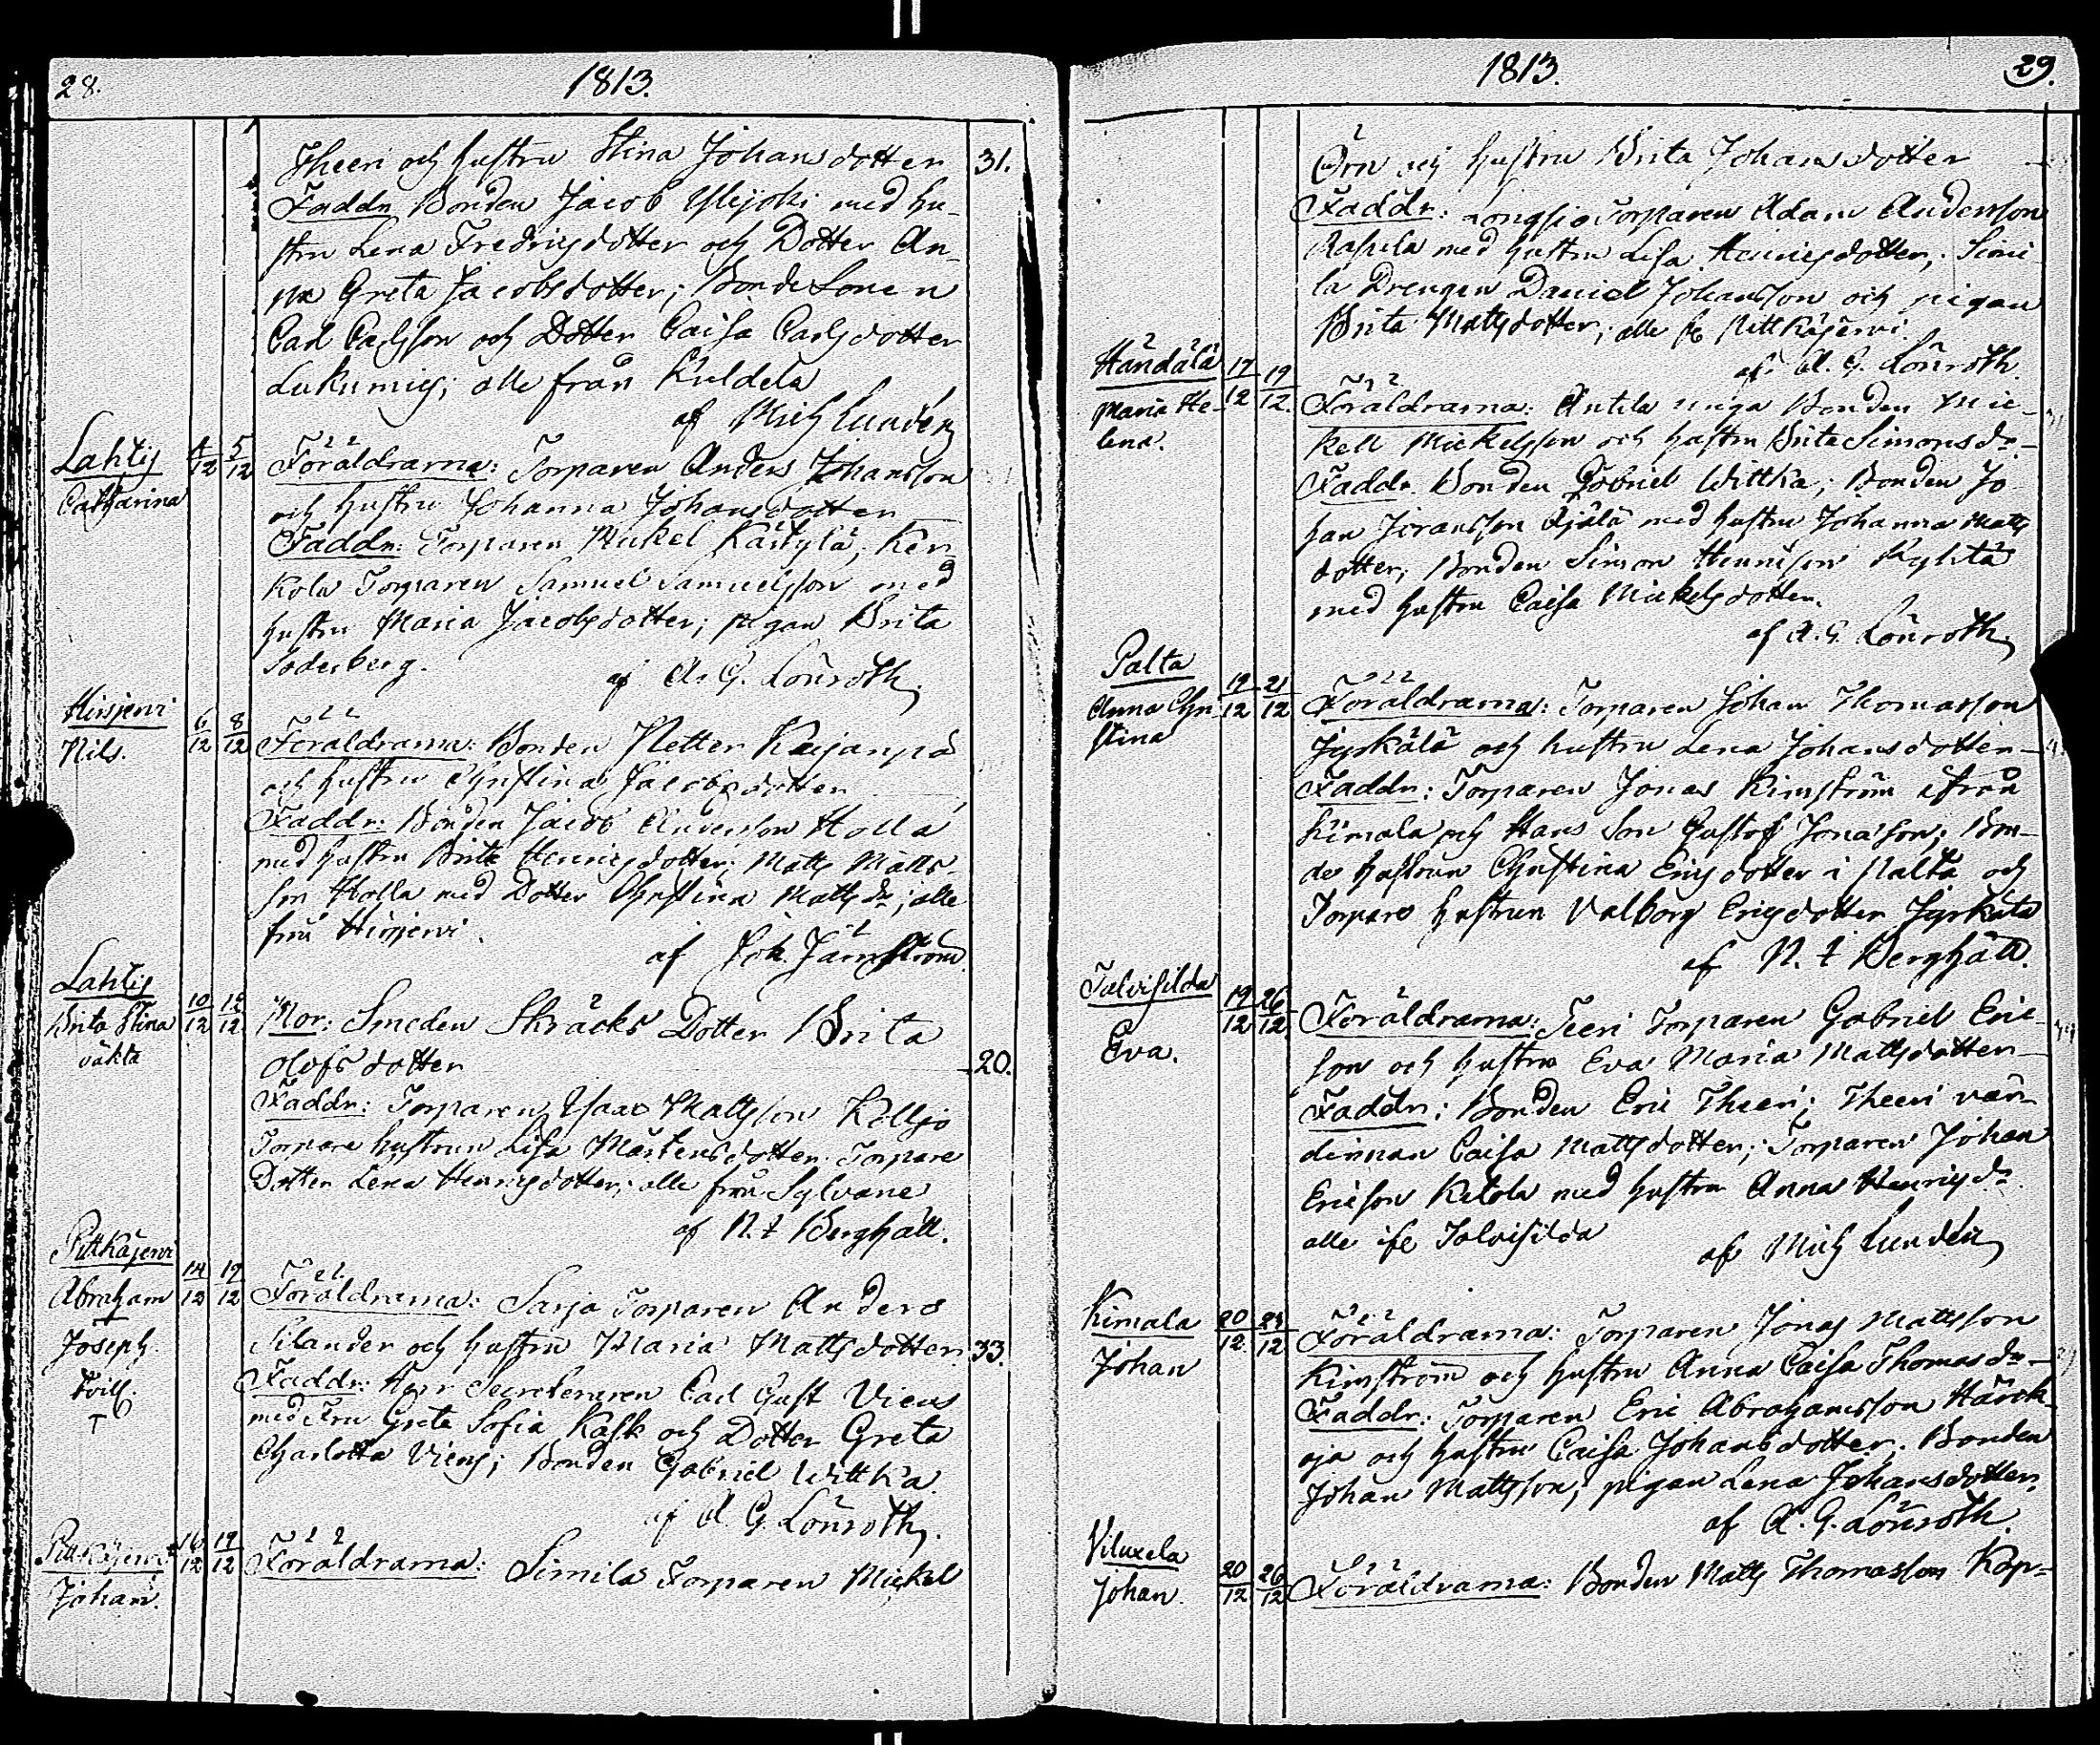 28. 1813.
Theeri och hustru Stina Johansdotter 31.
Faddr. Bonden Jacob Ylijoki med hu-
stru Lena Fredricsdotter och Dotter An-
na Greta Jacobsdotter; Bonde Sonen
Carl Carlsson och Dotter Caisa Carlsdotter
alle från Kuldela
af Mich Lundén
Lahtis 4/12 5/12 Föräldrarna: Torparen Anders Johansson
Catharina och hustru Johanna Johansdotter
Faddr: Torparen Mickel Kärtylä; Ker-
kola Torparen Samuel Samuelsson med
hustru Maria Jacobsdotter; pigan Brita
Söderberg.
af A. G. Lönroth.
Hirsjervi 6/12 8/12 Föräldrarna: Bonden Petter Karjanpä
Nils. och hustru Christina Jacobsdotter
Faddr: Bonden Jacob Andersson Holla
med hustru Brita Henricsdotter; Matts Matts-
son Holla med Dotter Christina Matts dr; alle
från Hirsjervi.
af Joh. Järnström.
Lahtis 10/12 12/12 Mor: Smeden Skräcks Dotter Brita
Brita Stina Olofsdotter 20.
oäkta
Faddr: Torparen Isaac Mattsson Kolljo
Torpare hustrun Lisa Mårtensdotter. Torpare
Dotter Lena Henricsdotter; alle från Sylvane
af N. t Berghäll.
Pittkäjervi 14/12 19/12 Föräldrarna: Sarja Torparen Anders
Abraham Silander och hustru Maria Mattsdotter 33.
Joseph.
Tvill.
Faddr: Herr Secreteraren Carl Gust Viens
med Fru Greta Sofia Kask och Dotter Greta
Charlotta Viens; Bonden Gabriel Wittka.
af A. G. Lönroth.
Pittkäjervi 16/12 19/12 Föräldrarna: Simila Torparen Mickel
Johan.
1813. 29.
Örn och hustru Brita Johansdotter
Faddr: Torparen Adam Andersson
med hustru Lisa Henricsdotter; Simi
la Drengen Daniel Johansson och pigan
Brita Mattsdotter; alle fr Pittkäjervi.
af A. G. Lönroth.
Händälä 17/12 19/12 Föräldrarna: Antila unga Bonden Mic-
Maria He- kell Mickelsson och hustru Brita Simonsdr
lena.
Faddr. Bonden Gabriel Wittka; Bonden Jo
han Jöransson Äjälä med hustru Johanna Matts
dotter; Bonden Simon Henricsson Kyhtä
med hustru Caisa Mickelsdotter.
af A. G. Lönroth.
Palta 19/12 21/12 Föräldrarna: Torparen Johan Thomasson
Anna Chri Jyskälä och hustru Lena Johansdotter
stina
Faddr: Torparen Jonas Kimström ifrån
Kimala och Hans Son Gustaf Jonasson; Bon-
de hustrun Christina Ericsdotter i Palta och
Torpare hustrun Valborg Ericsdotter Jyskälä
af N. t Berghäll.
Talvisilda 19/12 26/12 Föräldrarna: Teeri Torparen Gabriel Eric-
Eva. son och hustru Eva Maria Mattsdotter
Faddr: Bonden Eric Theeri; Theeri vär-
dinnan Caisa Mattsdotter; Torparen Johan
Ericson Ketola med hustru Anna Henricsdr
alle ifr Talvisilda
af Mich Lundén
Kimala 20/12 24/12 Föräldrarna: Torparen Jonas Mattsson
Johan Kimström och hustru Anna Caisa Thomasdr
Faddr: Torparen Eric Abrahamsson Härck-
oja och hustru Caisa Johansdotter. Bonden
Johan Mattsson; pigan Lena Johansdotter.
af A. G. Lönroth.
Viluxela 20/12 26/12 Föräldrarna: Bonden Matts Thomasson Kap-
Johan.